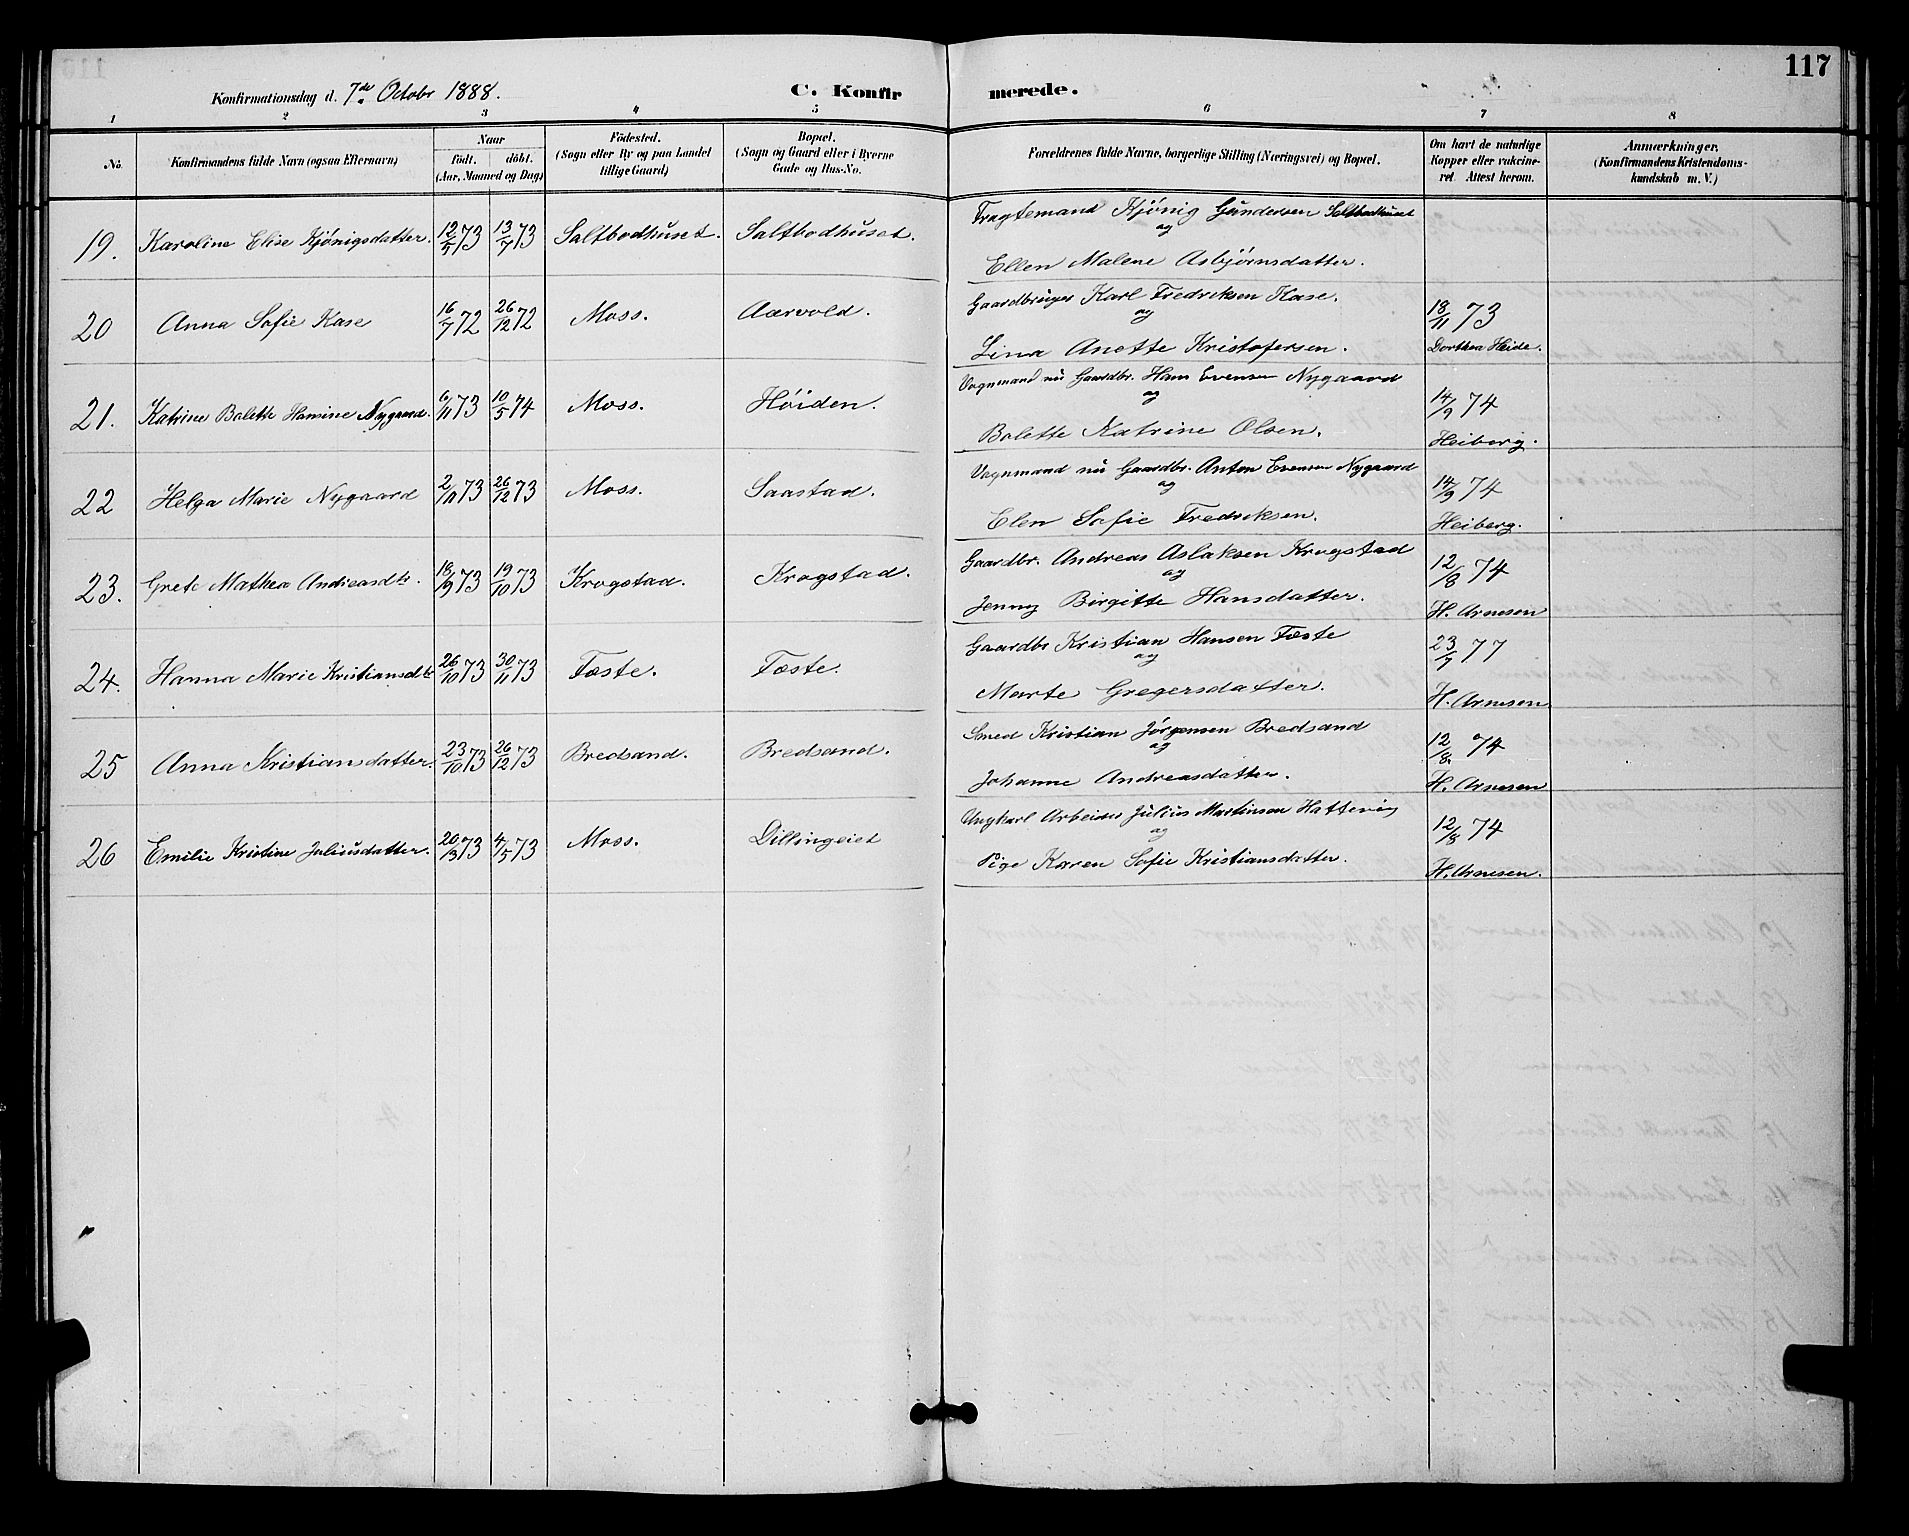 117
Konfirmationsdag d. 7de Octobr 1888.
C. Konfirmerede.
1 2 3 4 5 6 7 8
No.
Konfirmandens fulde Navn (ogsaa Efternavn)
Naar
födt. döbt.
(Aar, Maaned og Dag)
Födested.
(Sogn eller By og paa Landet
tillige Gaard)
Bopæl.
(Sogn og Gaard eller i Byerne
Gade og Hus-No.
Forældrenes fulde Navne, borgerlige Stilling (Næringsvei) og Bopæl.
Om havt de naturlige
Kopper eller vakcine-
ret Attest herom.
Anmærkninger,
(Konfirmandens Kristendoms-
kundskab m. V.)
19. Karoline Elise Kjønigsdatter. 12/5 73 13/7 73 Saltbodhuset. Saltbodhuset.
Fragtemand Kjønig Gundersen Saltbodhuset
og
Ellen Malene Asbjørnsdatter.
20 Anna Sofie Kase 16/7 72 26/12 72 Moss. Aarvold.
Gaardbruger Karl Fredriksen Kase. 18/11 73
og
Lina Anette Kristofersen. Dorthea Heide.
21. Katrine Bolette Hansine Nygaard. 6/11 73 10/5 74 Moss. Höiden.
Vognmand nu Gaardbr. Hans Evensen Nygaard 14/9 74
og
Bolette Katrine Olsen. Heiberg.
22 Helga Marie Nygaard 2/11 73 26/12 73 Moss. Saastad.
Vognmand nu Gaardbr. Anton Evensen Nygaard 14/9 74
og
Elen Sofie Fredriksen. Heiberg.
23. Grete Mathea Andreasdtr. 18/9 73 19/10 73 Krogstad. Krogstad.
Gaardbr. Andreas Aslaksen Krogstad 12/8 74
og
Jenny Birgitte Hansdatter. H. Arnesen
24. Hanna Marie Kristiansdtr 26/10 73 30/11 73 Tæste. Tæste.
Gaardbr Kristian Hansen Tæste 23/7 77
og
Marte Gregersdatter. H. Arnesen
25 Anna Kristiansdatter. 23/10 73 26/12 73 Bredsand. Bredsand.
Smed Kristian Jørgensen Bredsand 12/8. 74
og
Johanne Andreasdatter. H. Arnesen
26 Emilie Kristine Juliusdatter. 20/3 73 4/5 73 Moss. Dillingeiet
Ungkarl Arbeider Julius Martinsen 12/8 74
og
Pige Karen Sofie Kristiansdatter. H. Arnesen.